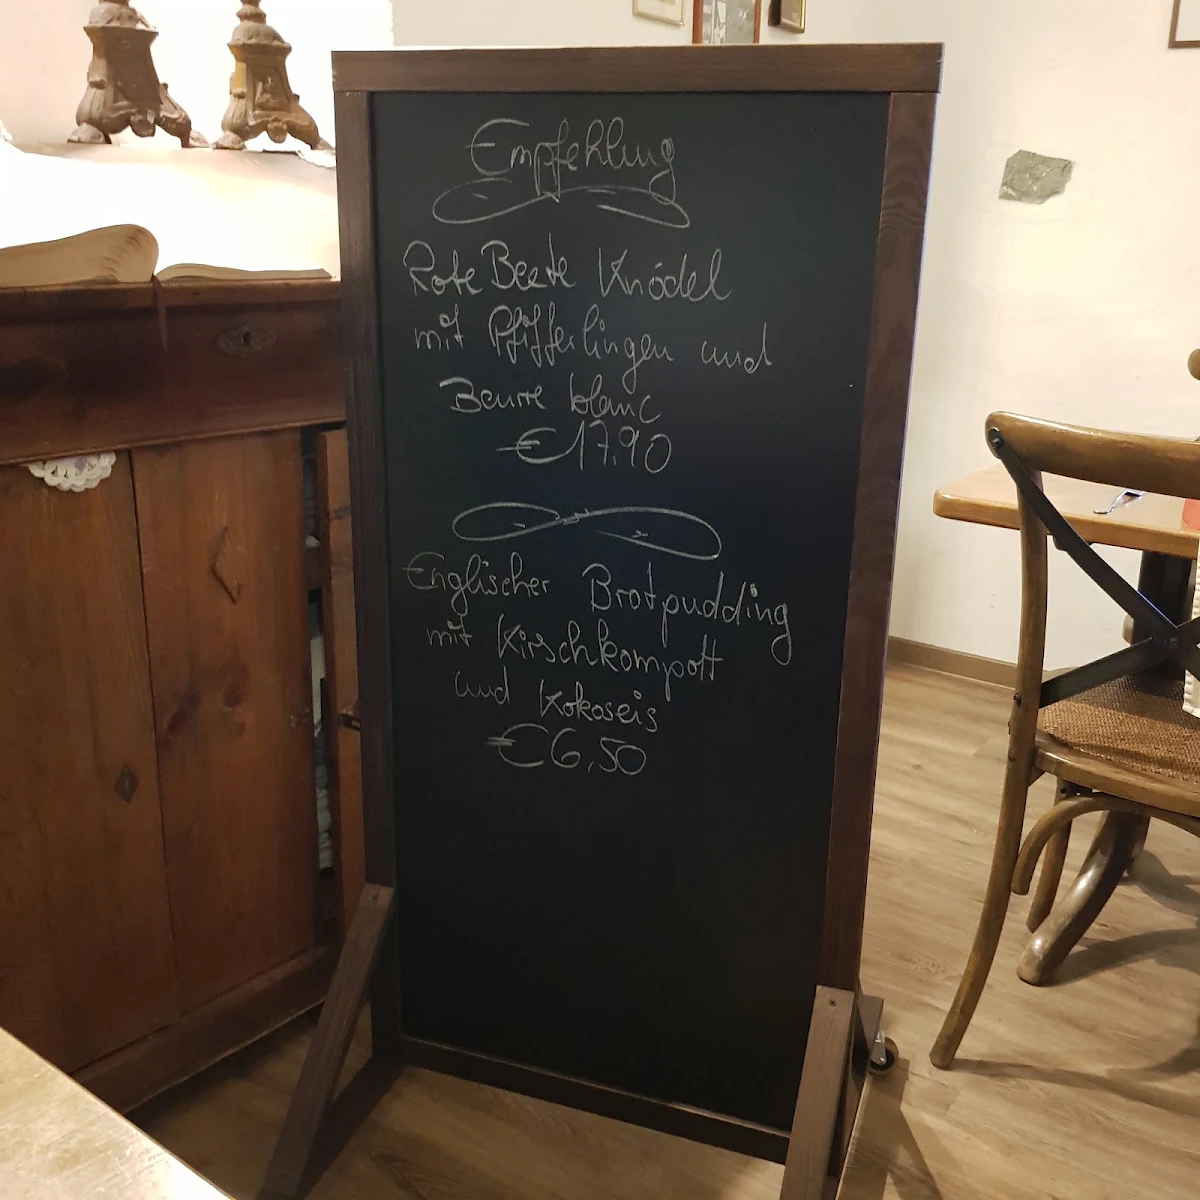 Empfehlung
Rote Beete Knödel
mit Pfifferlingen und
Beurre blanc
€17,90
Englischer Brotpudding
mit Kirschkompott
und Kokoseis
€6,50